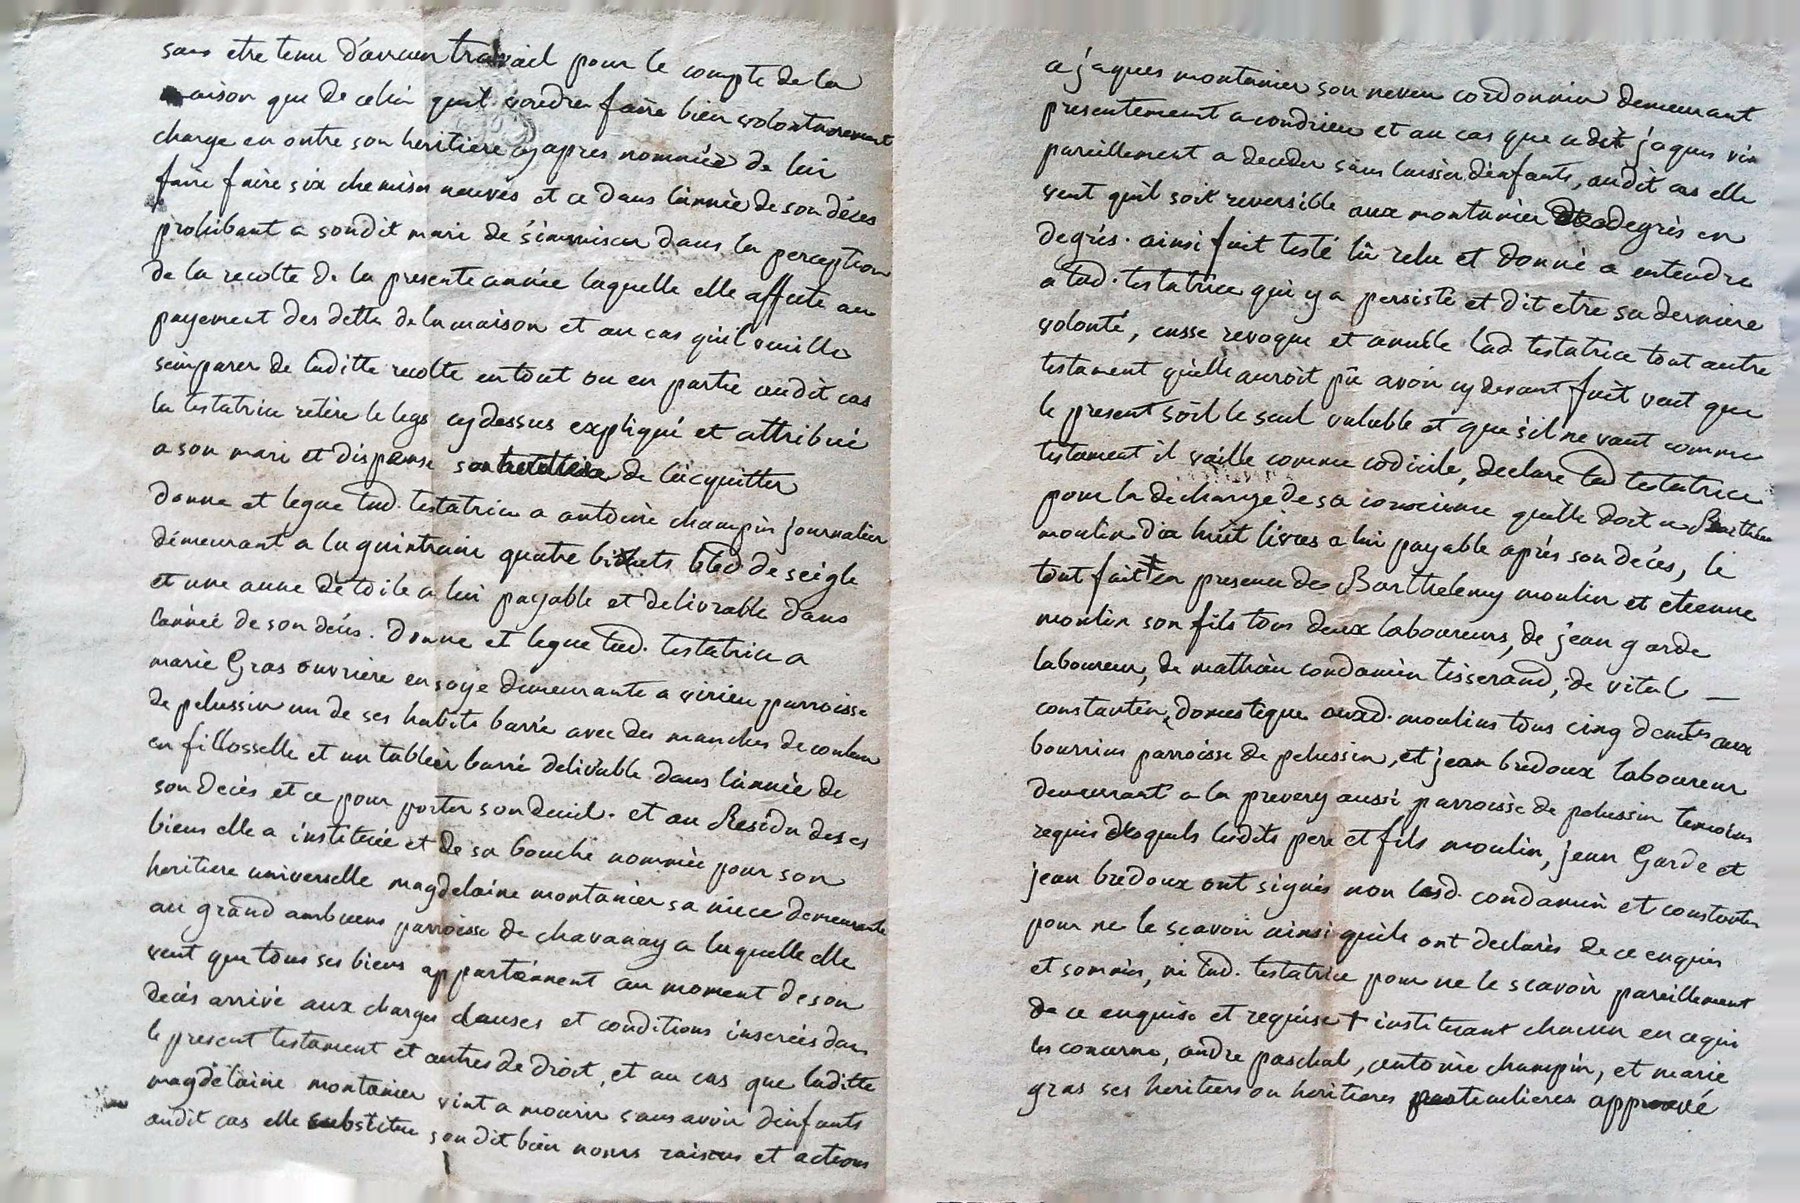 sans etre tenu d'aucun travail pour le compte de la
maison que de celui quil voudra faire bien volontairement
charge en outre son heritiere cy apres nommée de lui
faire faire six chemises neuves et ce dans l'année de son décés
prohibant a sondit mari de s'immiscer dans la perception
de la recolte de la presente année laquelle elle affecte au
payement des dettes de la maison et au cas qu'il veuille
s'emparer de laditte recolte en tout ou en partie audit cas
la testatrice retire le legs cy dessus expliqué et attribué
a son mari et dispense son heritiere de l'acquitter
donne et legue lad. testatrice a antoine champin journalier
démeurant a la guintranie quatre bichets bled de seigle
et une aune de toile a lui payable et delivrable dans
l'année de son décés. Donne et legue lad. testatrice a
marie Gras ouvriere en soye demeurante a virieu parroisse
de pelussin un de ses habits barré avec des manches de couleur
en fillosselle et un tablier barré delivrable dans l'année de
son decés et ce pour porter son deuil. et au Residu de ses
biens elle a instituée et de sa bouche nommée pour son
heritiere universelle magdelaine montanier sa niece demeurante
au grand ambuens parroisse de chavanay a laquelle elle
veut que tous ses biens appartiennent au moment de son
decés arrivé aux charges clauses et conditions inserées dans
le present testament et autres de droit, et au cas que laditte
magdelaine montanier vint a mourir sans avoir d'enfants
audit cas elle substitue son dit bien noms raisons et actions
a jaques montanier son neveu cordonnier demeurant
presentement a condrieu et au cas que ledit jaques vin
pareillement a deceder sans laisser d'enfants, audit cas elle
veut quil soit reversible aux montanier de degrés en
degrés. ainsi fait testé lû relu et donné a entendre
a lad. testatrice qui y a persisté et dit etre sa derniere
volonté, casse revoque et annulle lad testatrice tout autre
testament qu'elle auroit pû avoir cy devant fait veut que
le present soit le seul valable et que s'il ne vaut comme
testament il vaille comme codicile, declare lad testatrice
pour la decharge de sa conscience qu'elle doit a Barthelemy
moulin dix huit livres a lui payable aprés son decés, le
tout fait en presence de Barthelemy moulin et etienne
moulin son fils tous deux laboureurs, de jean garde
laboureur, de mathieu condamin tisserand, de vital
constantin, domestique auxd. moulins tous cinq demts aux
bourrins parroisse de pelussin, et jean bredoux laboureur
demeurant a la prevery aussi parroisse de pelussin temoins
requis desquels lesdits pere et fils moulin, jean Garde et
jean bredoux ont signés non lesd. condamin et constantin
pour ne le scavoir ainsi quils ont declarés de ce enquis
et sommés, ni lad. testatrice pour ne le scavoir pareillement
de ce enquise et requise + instituant chacun en ce qui
les concerne, andre paschal, antoine champin, et marie
gras ses heritiers ou heritieres particulieres approuvé